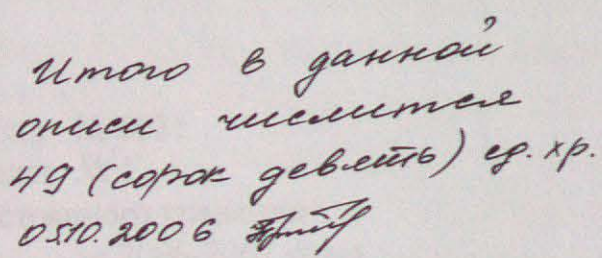 Итого в данной
описи числится
49 (сорок девять) ед. хр.
05.10.2006